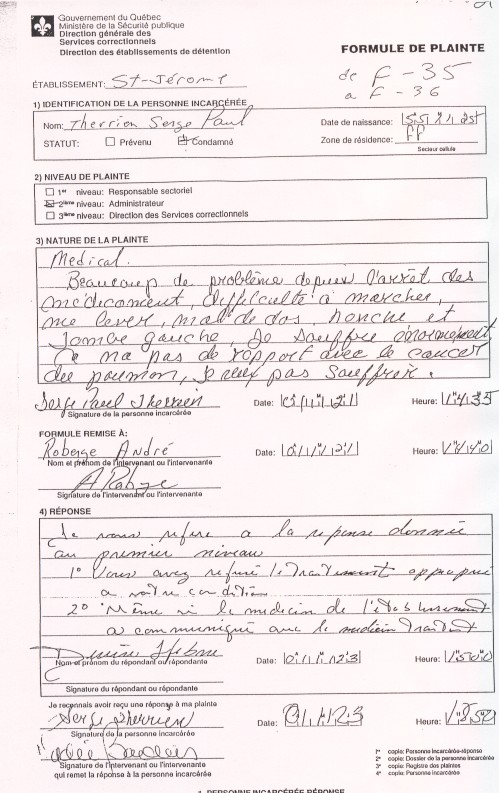 Gouvernement du Québec
Ministère de la Sécurité publique
Direction générale des
Services correctionnels
Direction des établissements de détention
FORMULE DE PLAINTE
de F-35
a F-36
ÉTABLISSEMENT: St-Jérome
1) IDENTIFICATION DE LA PERSONNE INCARCÉRÉE
Nom: Therrien Serge Paul
Date de naissance:
STATUT: Prévenu Condamné
Zone de résidence: FF
Secteur cellule
2) NIVEAU DE PLAINTE
1er niveau: Responsable sectoriel
2ième niveau: Administrateur
3ième niveau: Direction des Services correctionnels
3) NATURE DE LA PLAINTE
Medical.
Beaucoup de problème depuis l'arrêt des
médicament, difficulté à marcher,
me lever, mal de dos, hanche et
jambe gauche, Je souffre énormément,
Ça na pas de rapport avec le cancer
du poumon, je veux pas souffrir.
Serge Paul Therrien
Signature de la personne incarcérée
Date: 01 11 21
Heure: 14 35
FORMULE REMISE À:
Roberge André
Nom et prénom de l'intervenant ou l'intervenante
Date: 01 11 21
Heure: 14 40
Signature de l'intervenant ou l'intervenante
4) RÉPONSE
Je vous réfère a la réponse donnée
au premier niveau
1° Vous avez refusé le traitement approprié
a votre condition
2° Même si le medecin de l'établissement
a communiqué avec le medecin traitant
Nom et prénom du répondant ou répondante
Date: 01 11 23
Heure: 1500
Signature du répondant ou répondante
Je reconnais avoir reçu une réponse à ma plainte
Serge Therrien
Signature de la personne incarcérée
Date: 01 11 23
Heure:
Signature de l'intervenant ou l'intervenante
qui remet la réponse à la personne incarcérée
1re copie: Personne incarcérée-réponse
2e copie: Dossier de la personne incarcérée
3e copie: Registre des plaintes
4e copie: Personne incarcérée